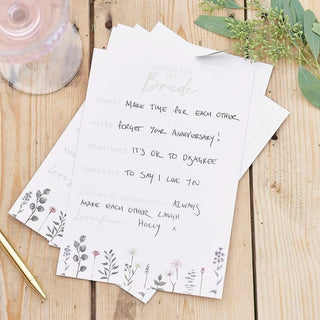 ADVICE FOR
THE
Bride
ALWAYS MAKE TIME FOR EACH OTHER
NEVER FORGET YOUR ANNIVERSARY!
SOMETIMES IT'S OK TO DISAGREE
REMEMBER TO SAY I LOVE YOU
AND MOST IMPORTANTLY ALWAYS
MAKE EACH OTHER LAUGH
Love from HOLLY X